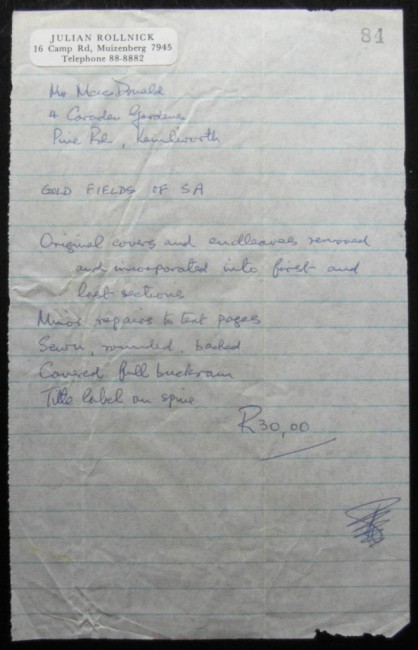 JULIAN ROLLNICK
16 Camp Rd, Muizenberg 7945
Telephone 88-8882
84
Mr MacDonald
4 Gardens
Pine Rd, Kenilworth
GOLD FIELDS OF SA
Original covers and endleaves removed
and incorporated into first and
last sections
Minor repairs to text pages
Sewn, rounded, backed
Covered full buckram
Title label on spine
R30,00